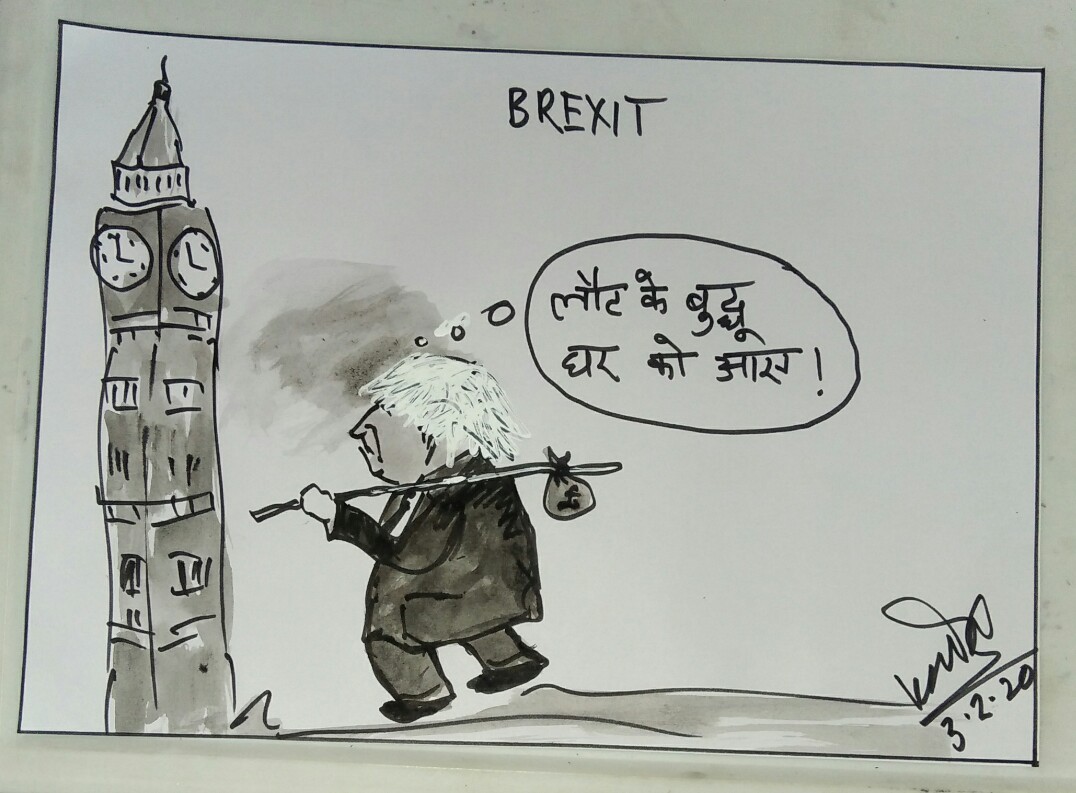 BREXIT
लौट के बुद्धू
घर को आए !
£
3.2.20